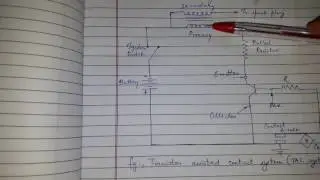 Secondary
To spark plug
Ignition
Switch
Primary
Ballast
Resistor
Emitter
Battery
R
Collector
Contact
Breaker
fig:- Transistor assisted contact system (TAC syst